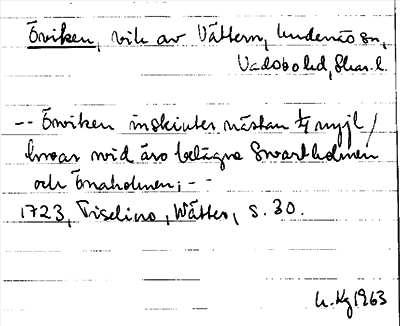 Öviken, vik av Vättern, Undenäs sn,
Vadsbo hd, Skar. l.
-- Öwiken inskiuter nästan 1/4 myjl /
hwar wid äro belägne Swartholmen
och Önaholmen; - -
1723, Tiselius, Wätter, s. 30.
1963